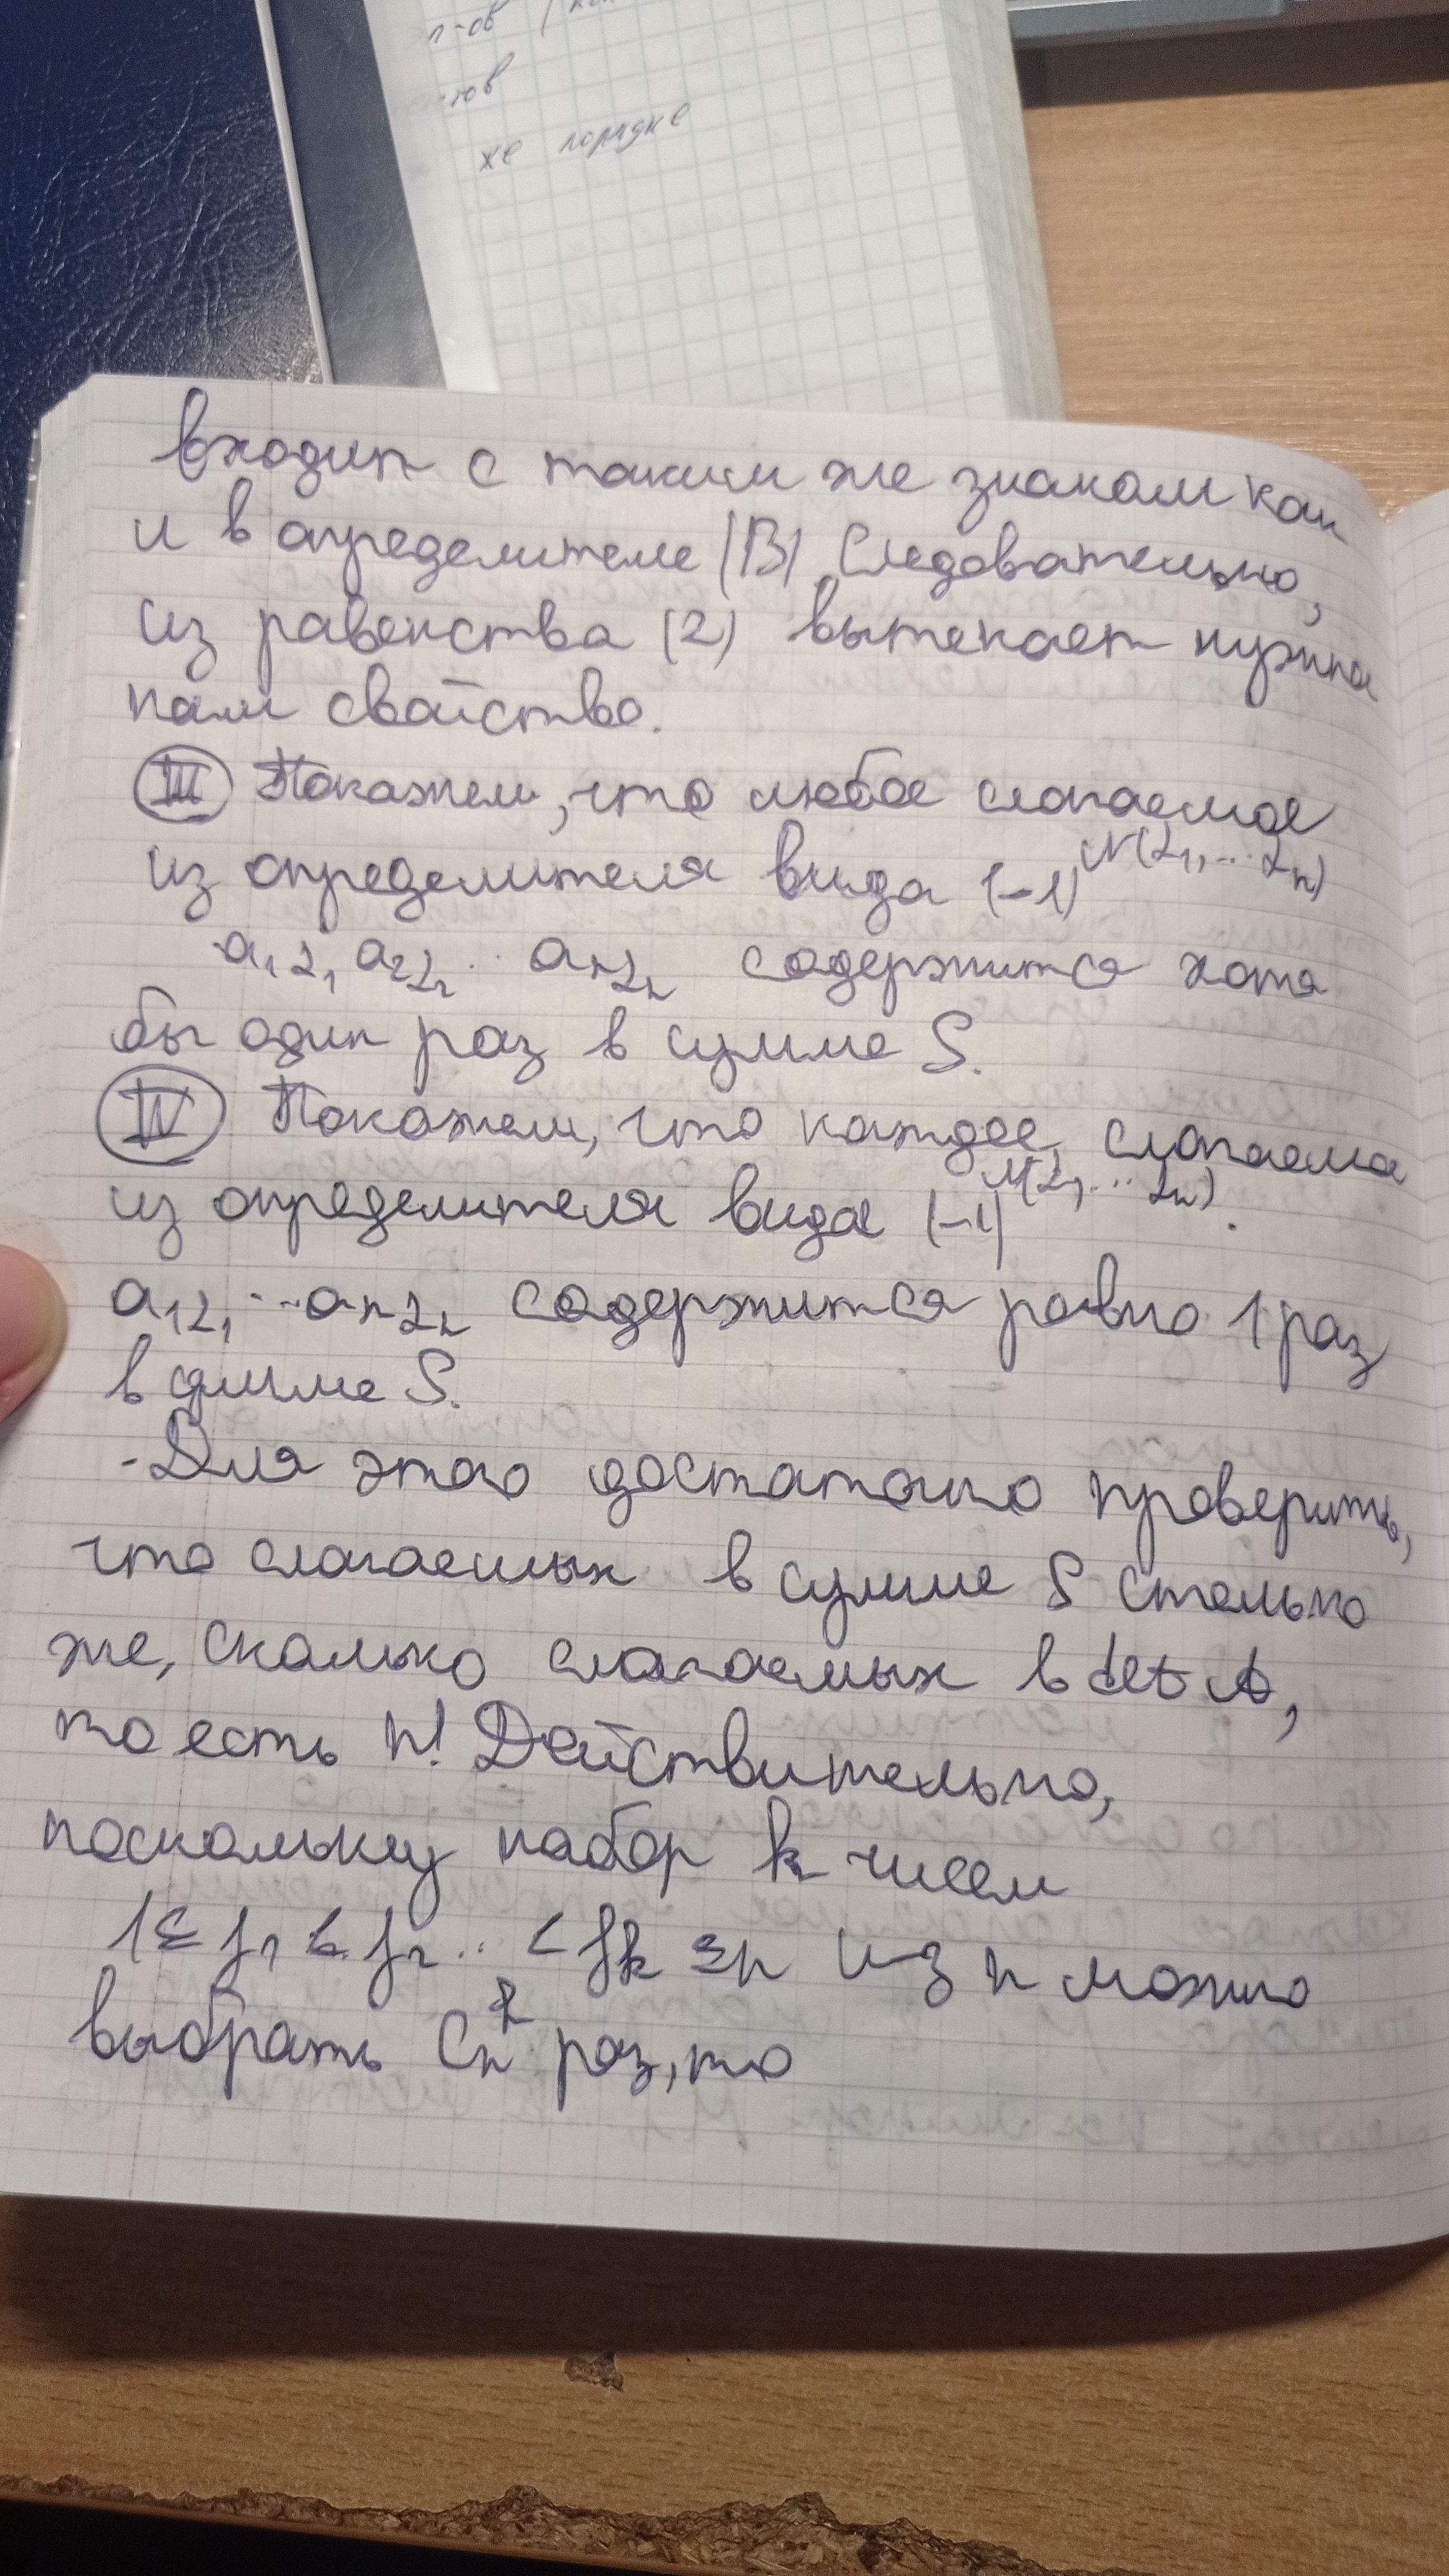 же порядке
входит с таким же знаком как
и в определителе |B|. Следовательно,
из равенства (2) вытекает нужное
нам свойство.
III Покажем, что любое слагаемое
из определителя вида (-1)^N(α₁,...αₙ)
a₁α₁ a₂α₂ ... aₙαₙ содержится хотя
бы один раз в сумме S.
IV Покажем, что каждое слагаемое
из определителя вида (-1)^N(α₁,...αₙ) ·
a₁α₁ ... aₙαₙ содержится ровно 1 раз
в сумме S.
- Для этого достаточно проверить,
что слагаемых в сумме S столько
же, сколько слагаемых в det A,
то есть n! Действительно,
поскольку набор k чисел
1 ≤ j₁ < j₂ ... < jk ≤ n из n можно
выбрать Cₙᵏ раз, то